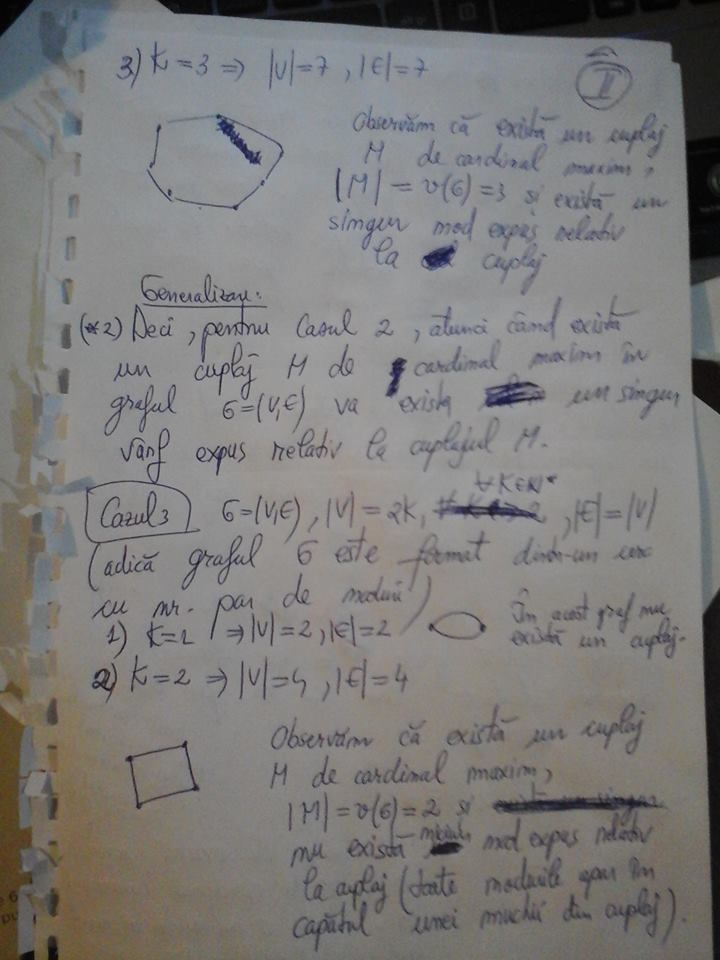 II
3) K=3 => |V|=7, |E|=7
Observăm că există un cuplaj
M de cardinal maxim,
|M| = ν(G) = 3 și există un
singur nod expus relativ
la cuplaj
Generalizare:
(*2) Deci, pentru Cazul 2, atunci când există
un cuplaj M de cardinal maxim în
graful G=(V,E) va exista un singur
vârf expus relativ la cuplajul M.
∀K∈N*
Cazul 3 G=(V,E), |V| = 2K, |E|=|V|
(adică graful G este format dintr-un
cu nr. par de noduri)
1) K=1 => |V|=2, |E|=2
În acest graf nu
există un cuplaj.
2) K=2 => |V|=4, |E|=4
Observăm că există un cuplaj
M de cardinal maxim,
|M| = ν(G) = 2 și
nu există niciun nod expus relativ
la cuplaj (toate nodurile apar în
capătul unei muchii din cuplaj).